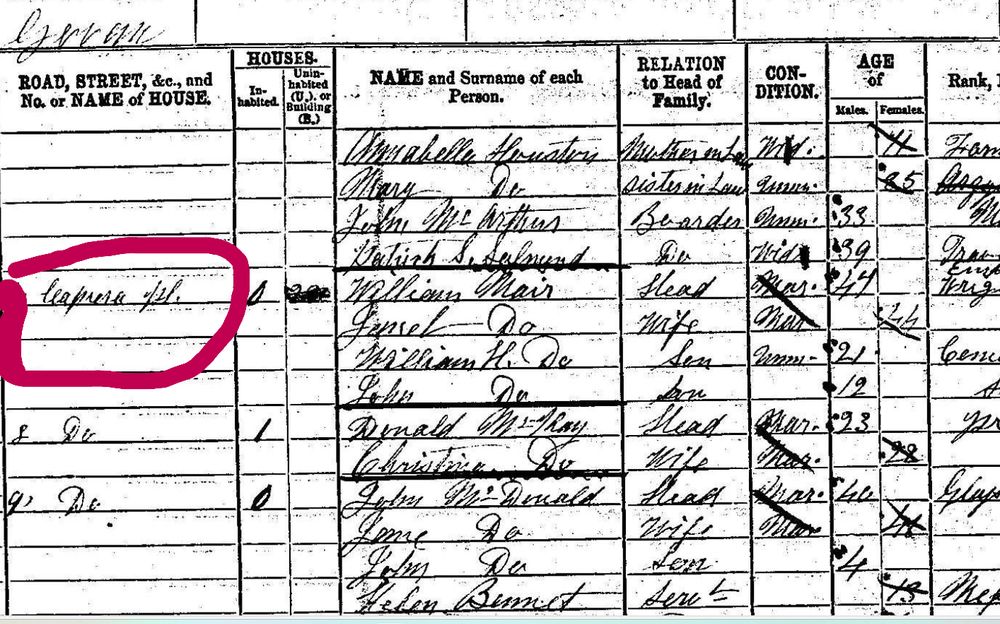 Govan
ROAD, STREET, &c., and No. or NAME of HOUSE.
HOUSES.
In-habited.
Unin-habited (U.), or Building (B.)
NAME and Surname of each Person.
RELATION to Head of Family.
CON-DITION.
AGE of
Males.
Females.
Rank,
Annabella Houston Mother in Law Wid.
Mary Do Sister in Law Unm. 25
John McArthur Boarder Unm. 33
Patrick S. Do Wid 39
pl. 0 William Mair Head Mar. 47
Do Wife Mar 44
William H. Do Son Unm. 21
John Do Son 12
8 Do 1 Donald McKay Head Mar. 23
Christina Do Wife Mar. 28
9 Do 0 John McDonald Head Mar. 40
Jane Do Wife Mar
John Do Son 4
Helen Bennet Servt 13